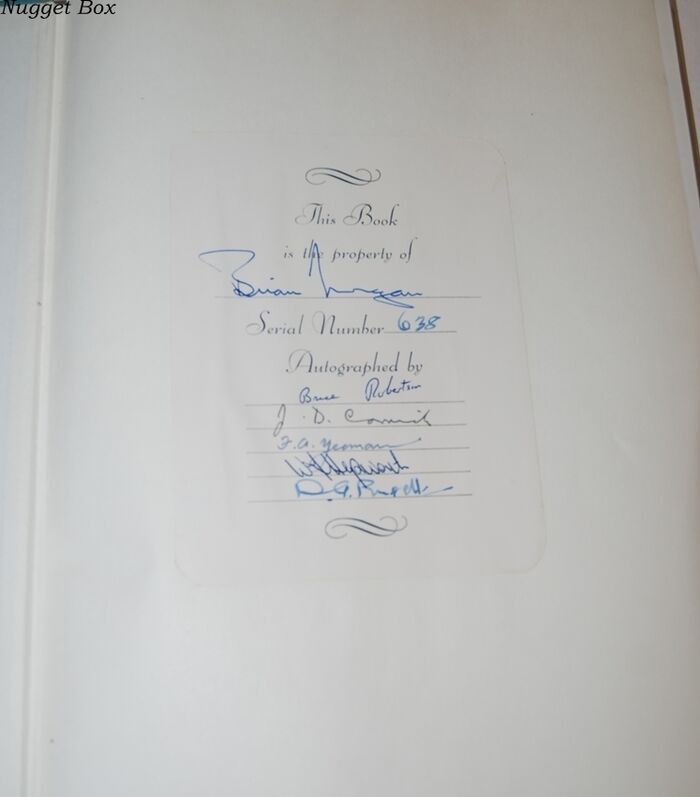 Nugget Box
This Book
is the property of
Brian Morgan
Serial Number 638
Autographed by
Bruce Robertson
J. D. Cormick
F.A. Yeoman
D. G.